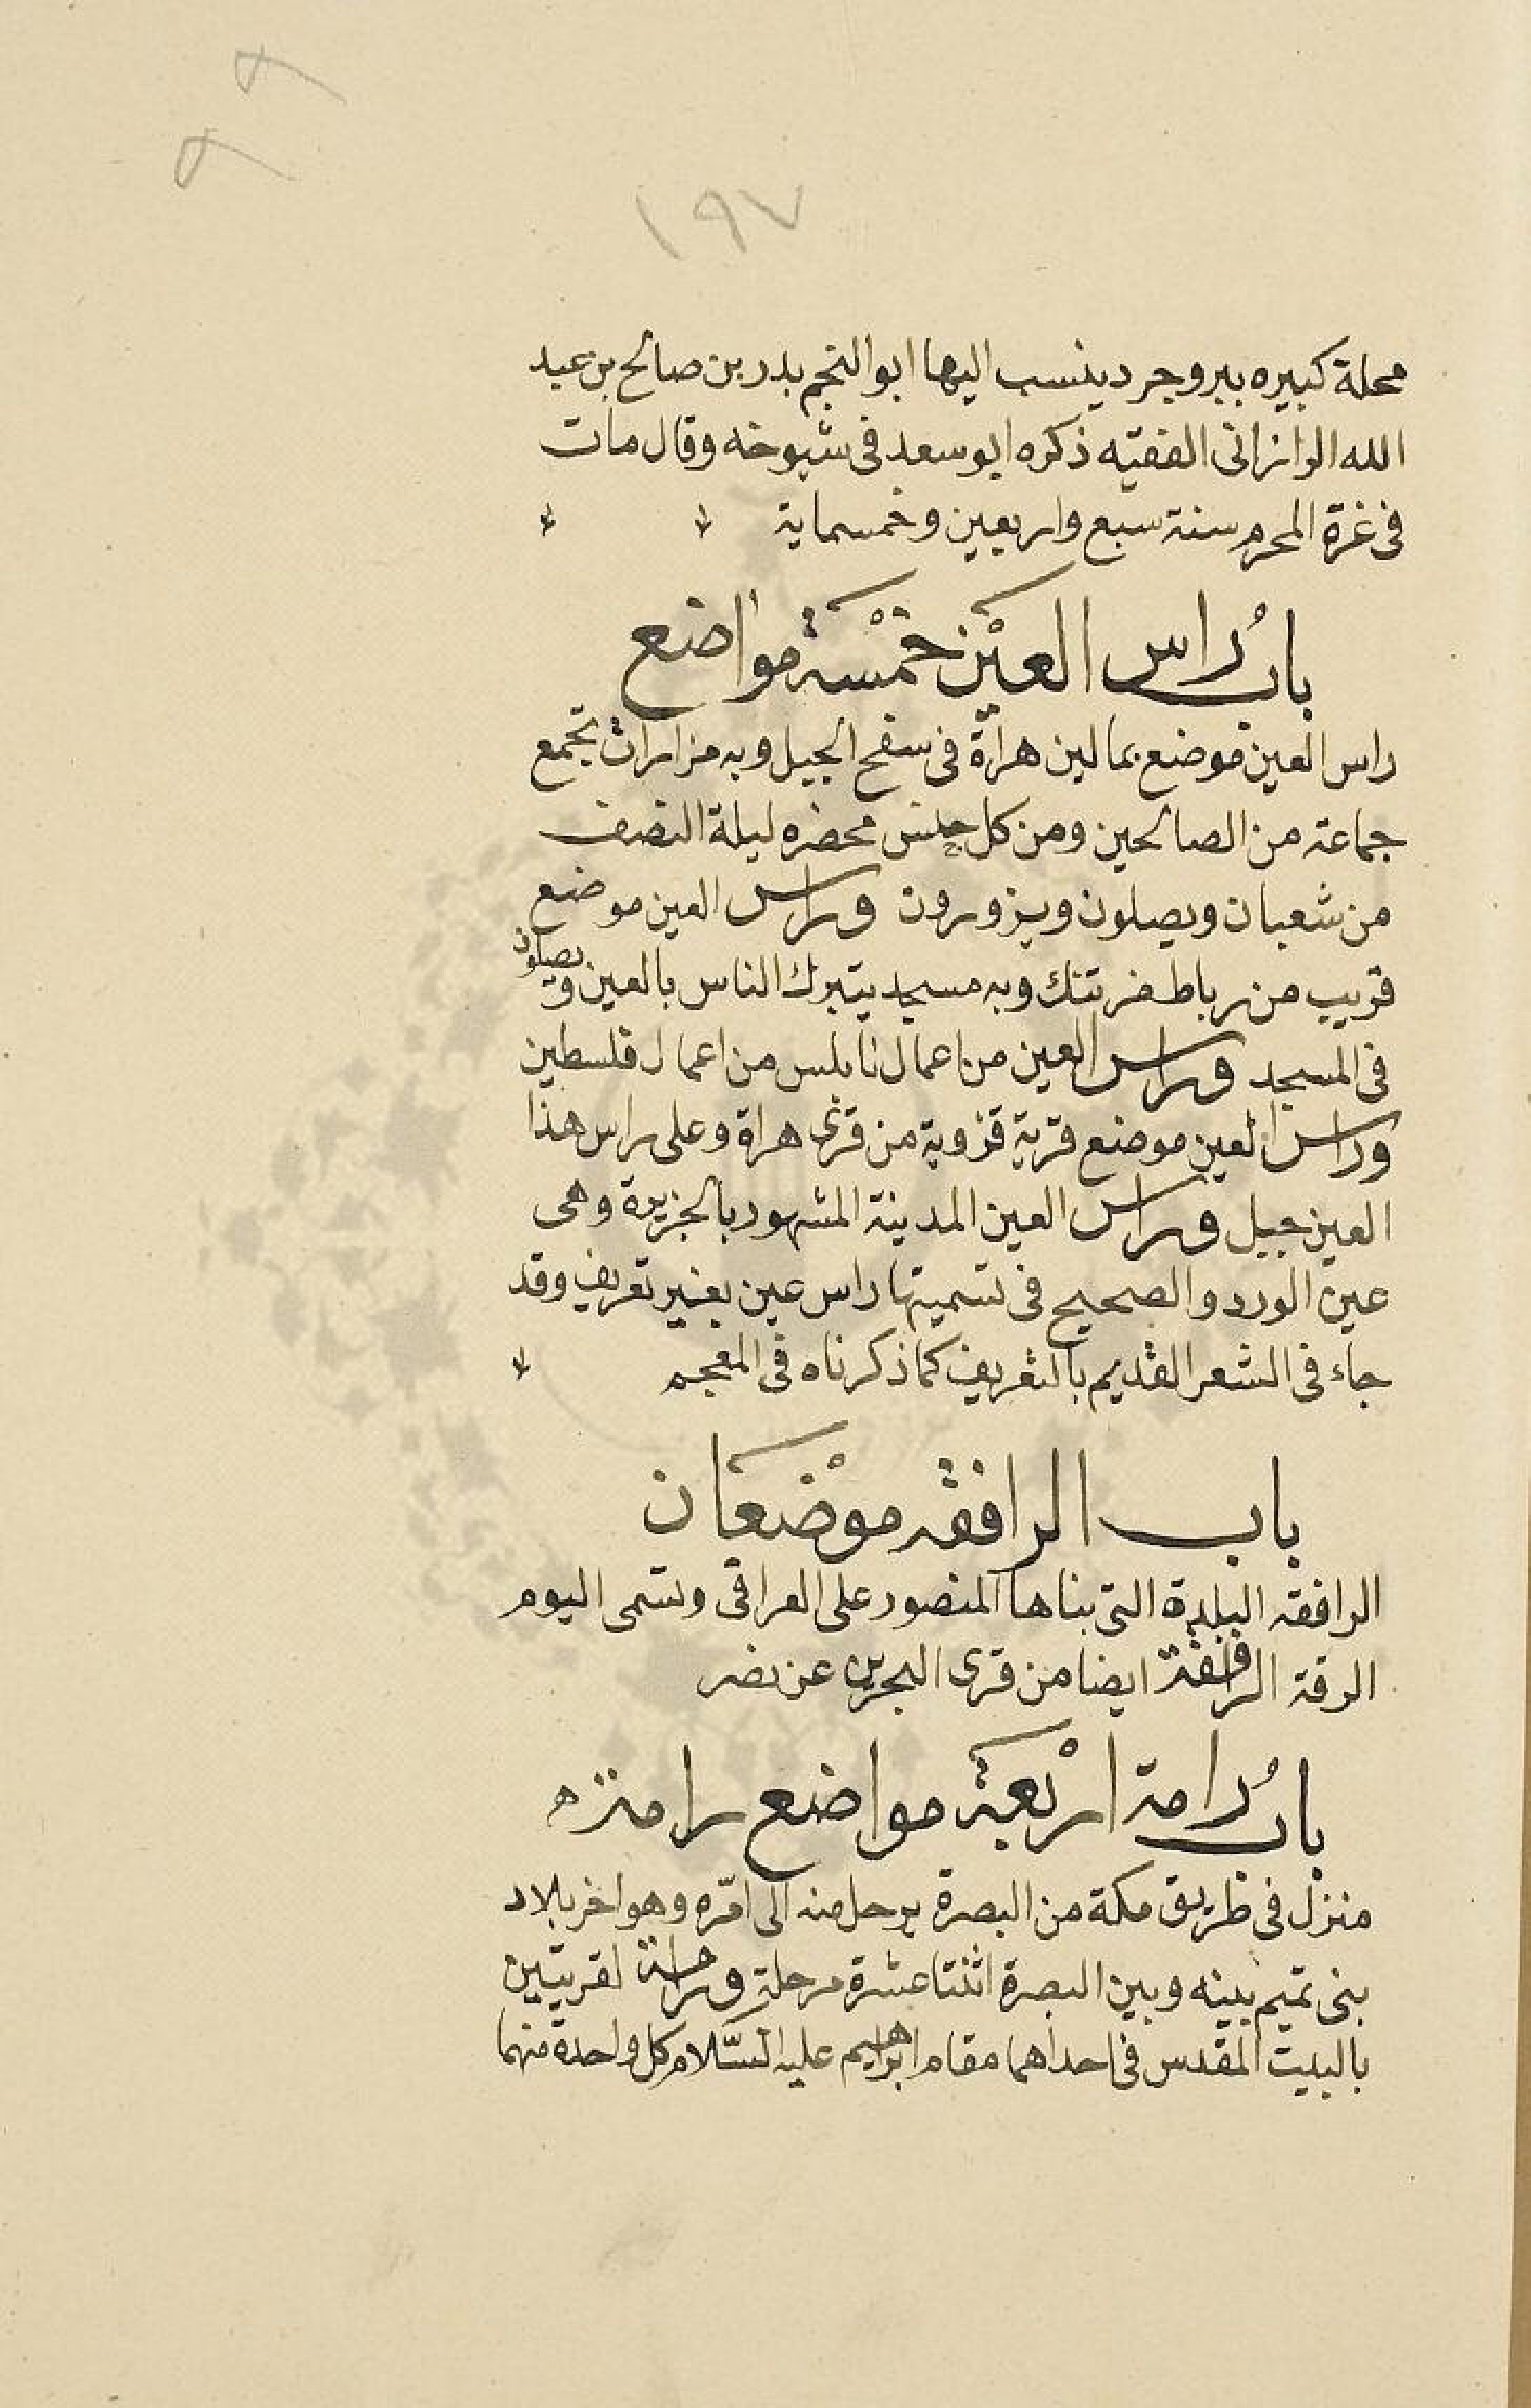 ١٩٧
محلة كبيره ببروجرد ينسب اليها ابو النجم بدر بن صالح بن عبد
الله الرازانى الفقيه ذكره ابو سعد فى شيوخه وقال مات
فى غرة المحرم سنة سبع واربعين وخمسماية
بابُ راس العيْن خمْسة مواضع
راس العين موضع بمالين هراة فى سفح الجبل وبه مزارات تجمع
جماعة من الصالحين ومن كل جنس محضره ليلة النصف
من شعبان ويصلون ويزورون وراس العين موضع
قريب من رباط وبه مسجد يتبرك الناس بالعين ويصلون
فى المسجد وراس العين من اعمال نابلس من اعمال فلسطين
وراس العين موضع قرية من قرى هراة وعلى راس هذا
العين جبل وراس العين المدينة المشهور بالجزيرة وهى
عين الورد والصحيح فى تسميتها راس عين بغير تعريف وقد
جاء فى الشعر القديم بالتعريف كما ذكرناه فى المعجم
باب الرافقه موْضعان
الرافقه البلدة التى بناها المنصور على العراقى وتسمى اليوم
الرقة الرافقة ايضا من قرى البحرين عن نصر
بابُ رامة ارْبعة مواضع رامة
منزل فى طريق مكة من البصرة يرحل منه الى امّره وهو اخر بلاد
بنى تميم بينه وبين البصرة اثنتا عشرة مرحلة ورامة لقريتين
بالبيت المقدس فى احداهما مقام ابراهيم عليه السّلام كل واحدة منهما